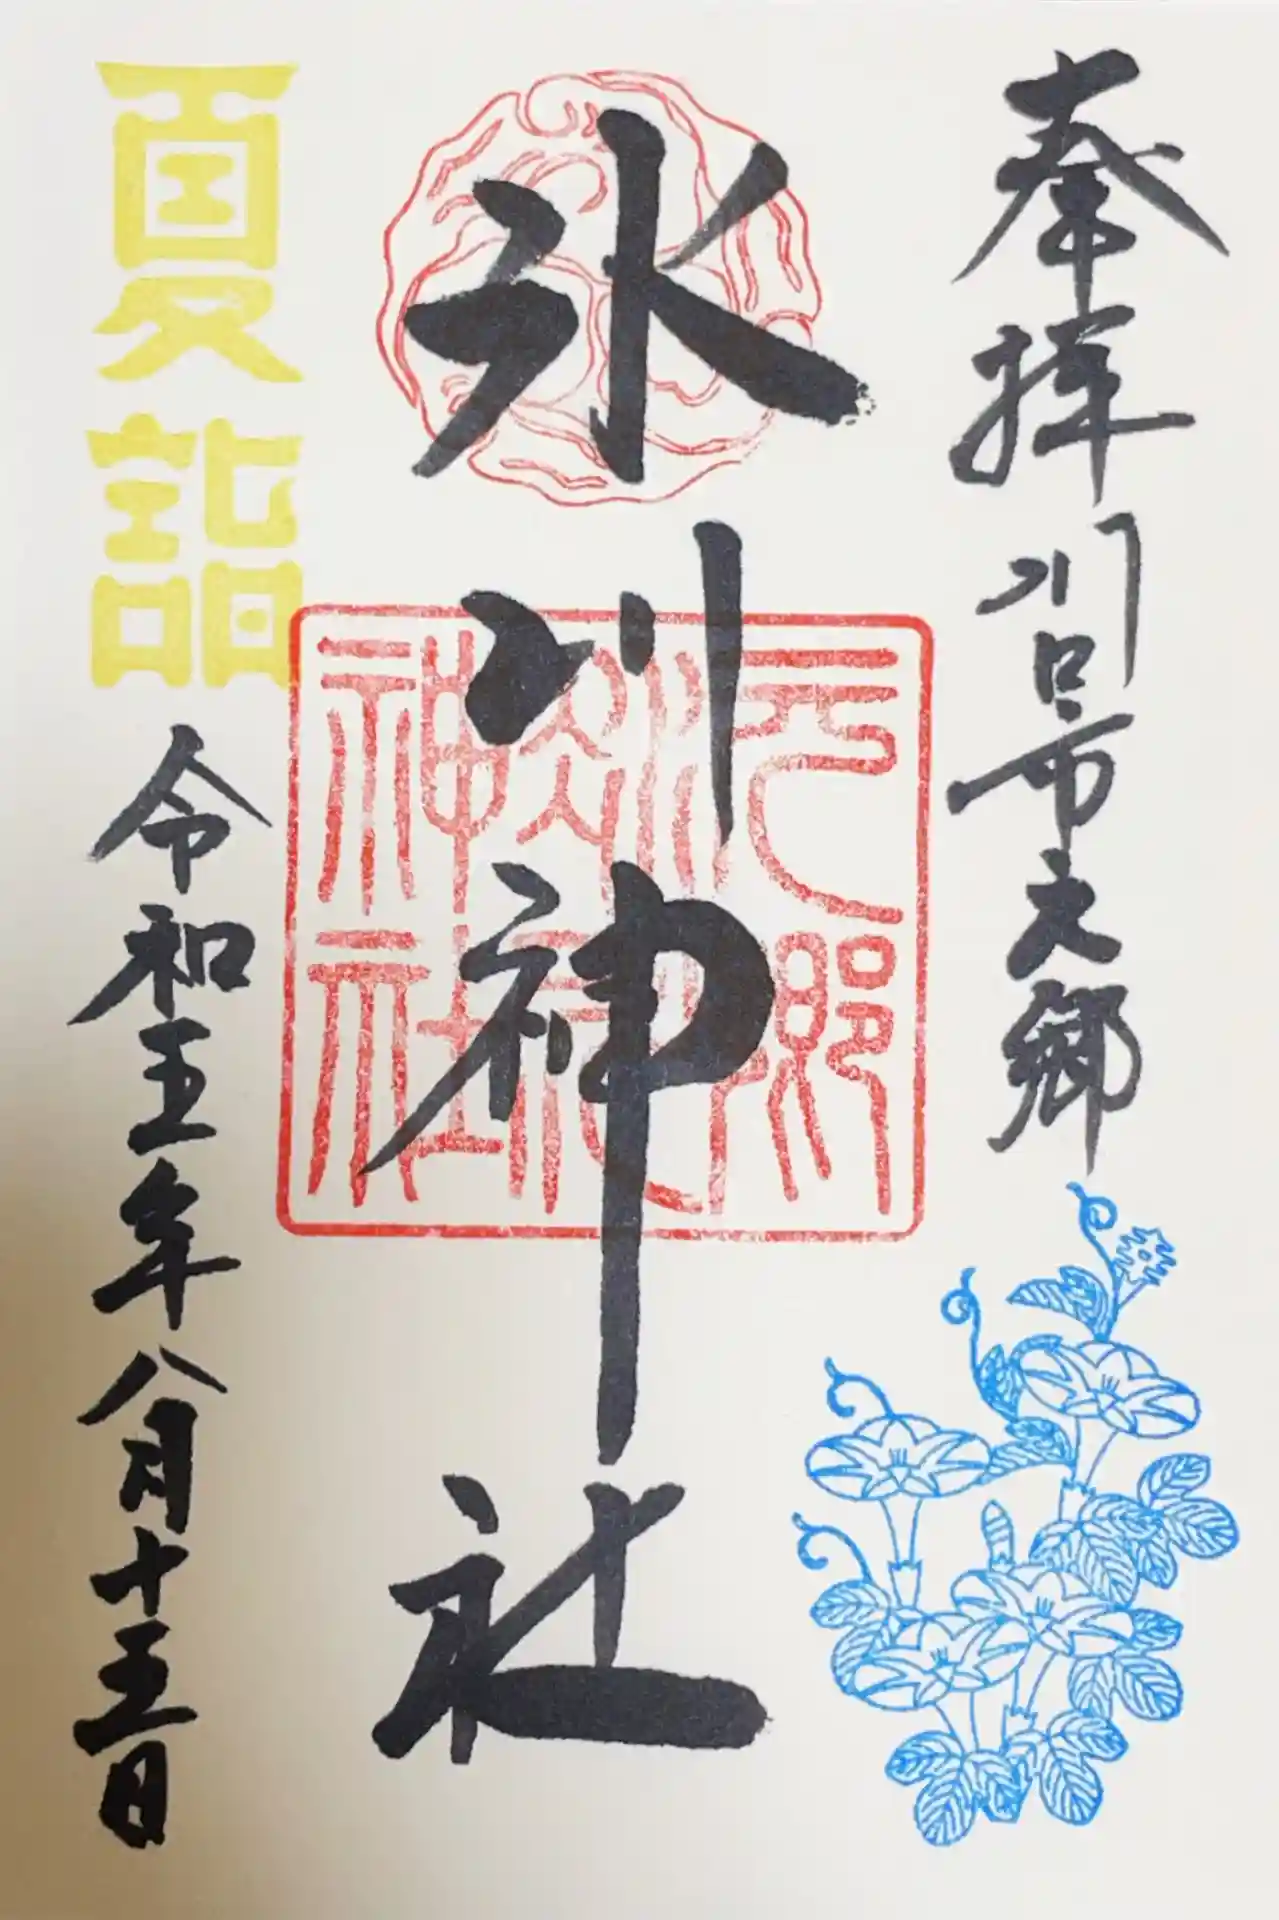 奉拝
川口市元郷
氷川神社
元郷
氷川
神社
夏詣
令和五年八月十五日